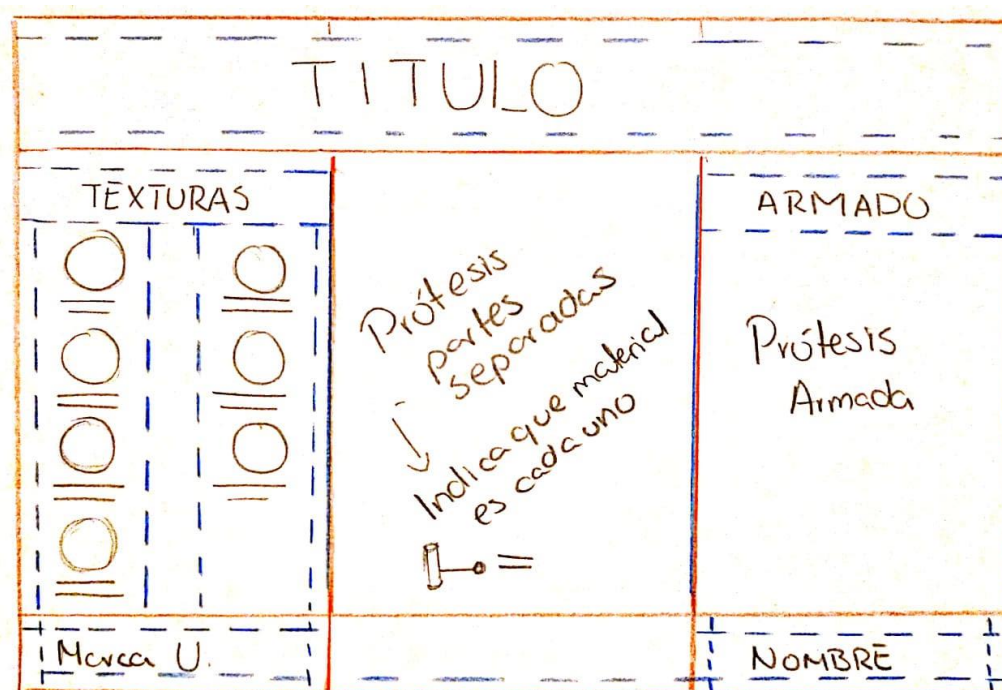 TITULO
TEXTURAS
Prótesis
partes
separadas
Indica que material
es cada uno
ARMADO
Prótesis
Armada
Marca U.
NOMBRE